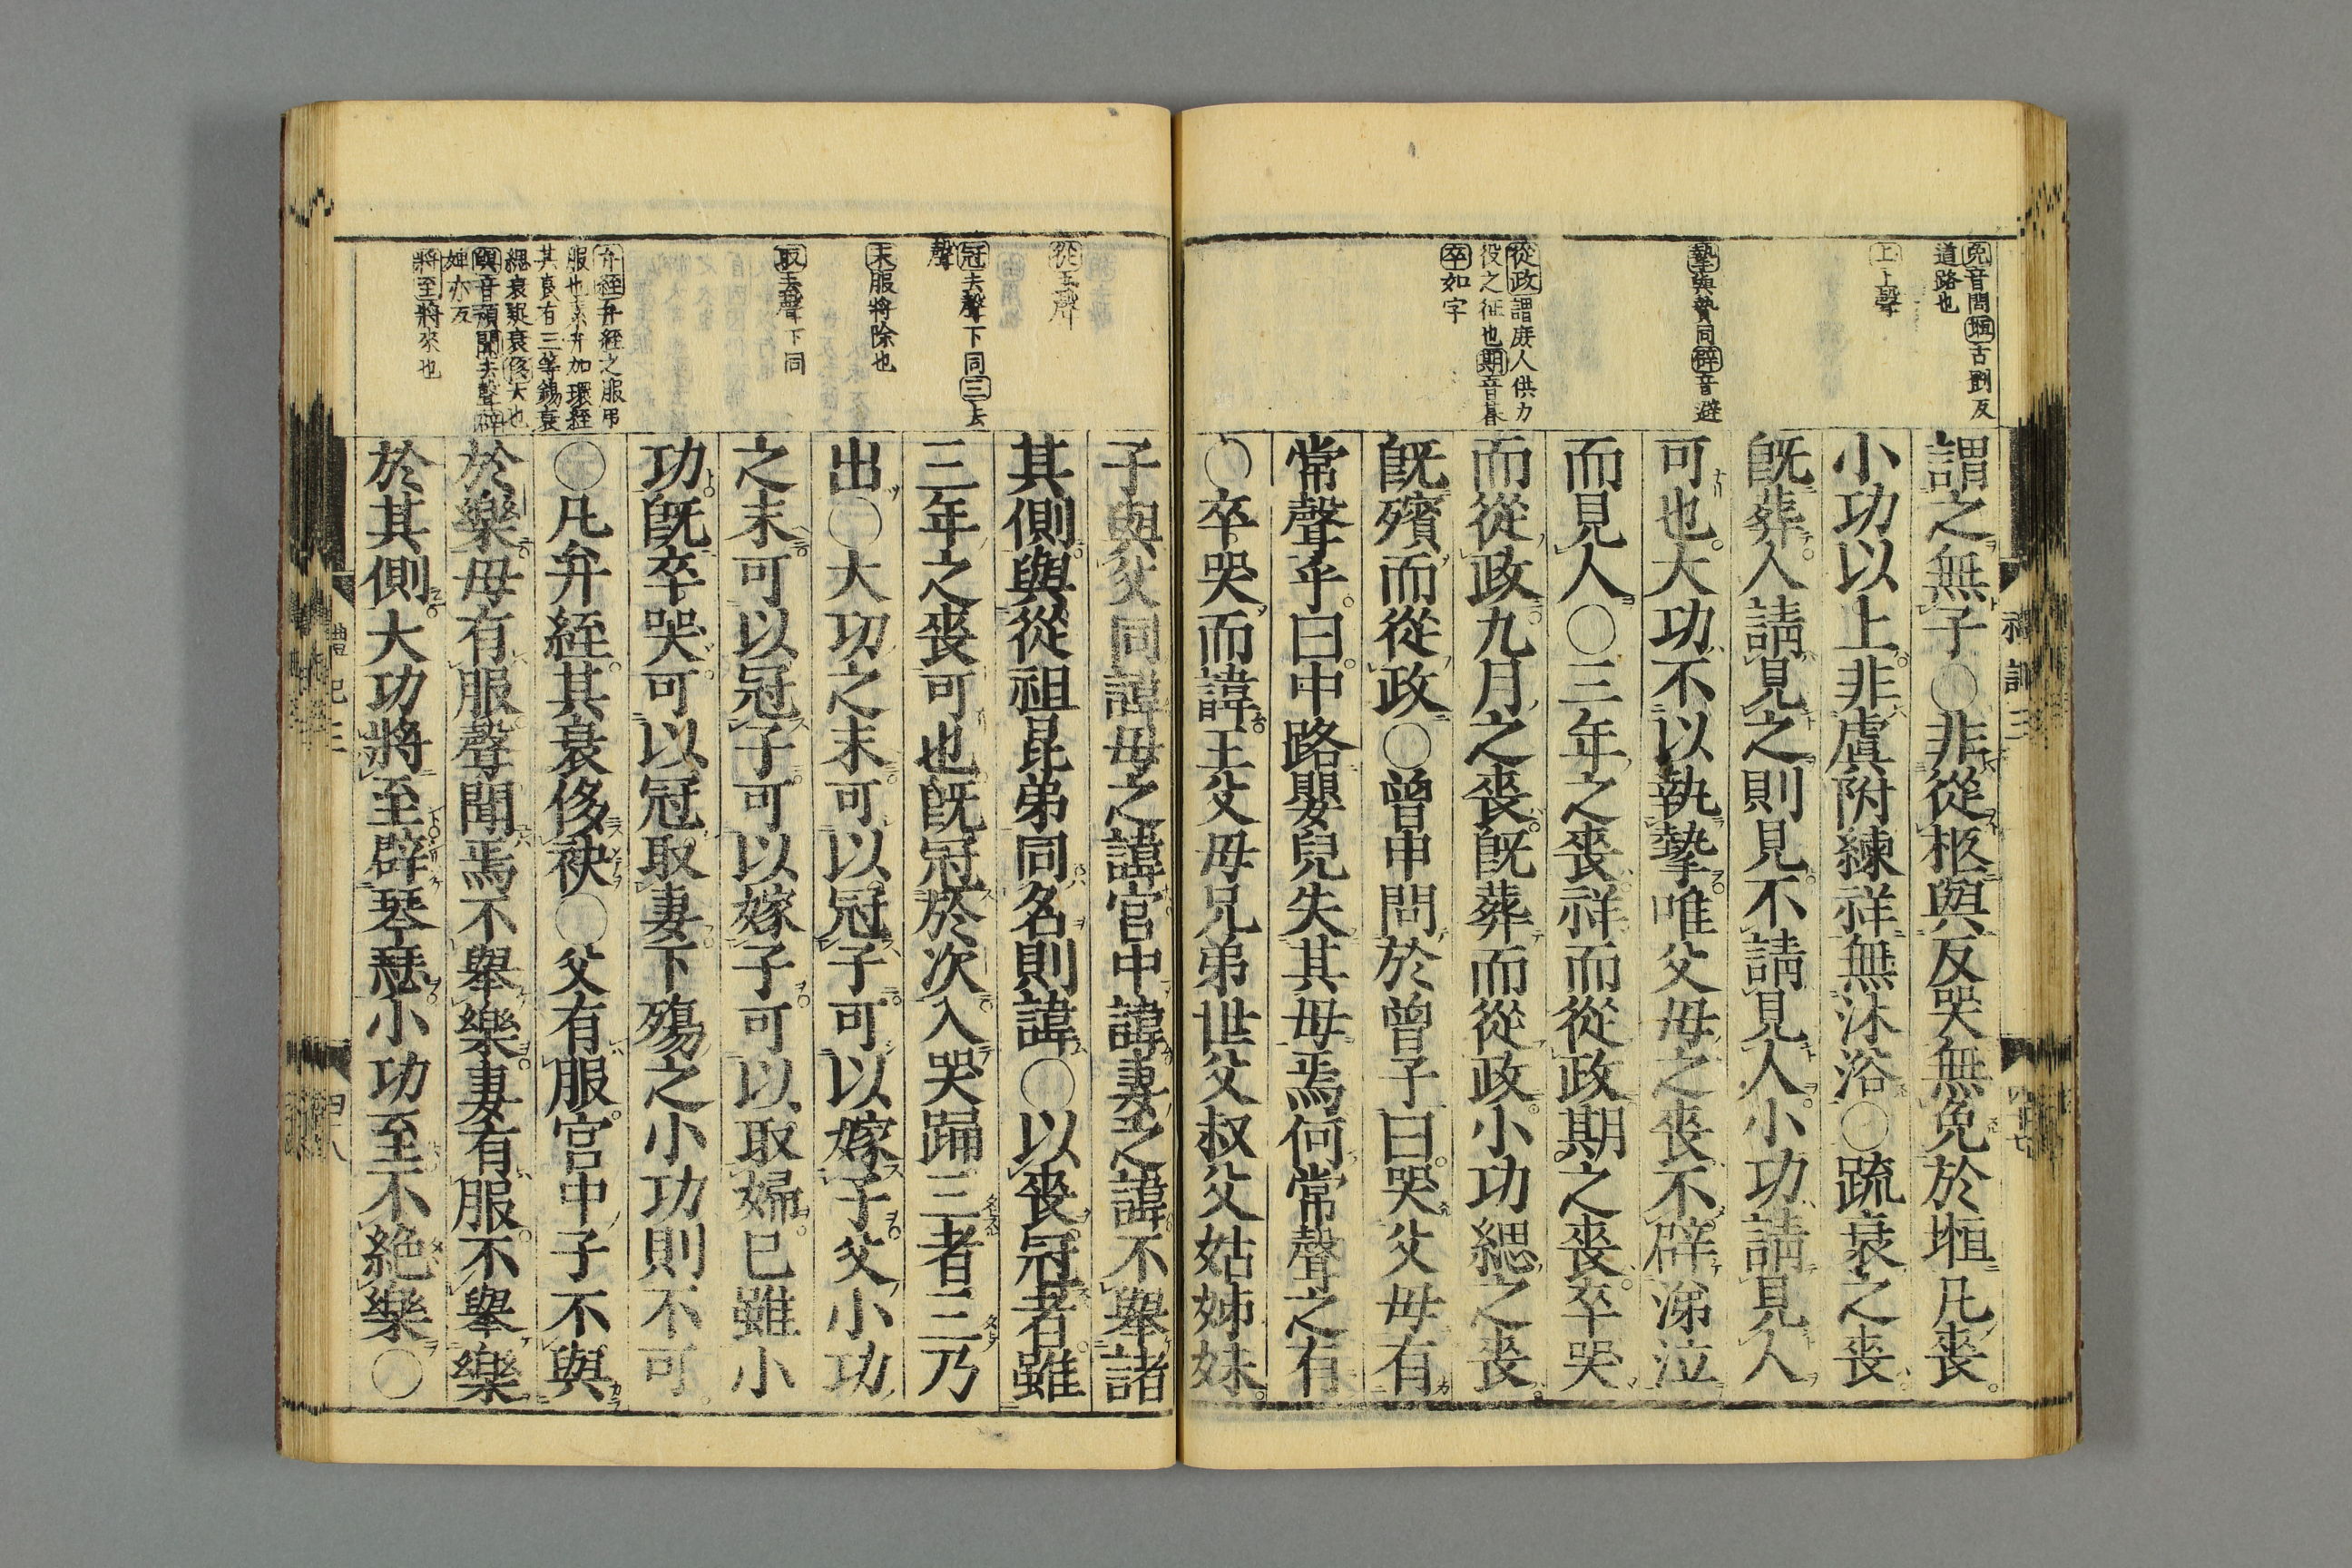 免音問堩古鄧反
道路也
上上聲
摯與贄同辟音避
從政謂庶人供力
役之征也期音朞
卒如字
謂之無子○非從柩與反哭無免於堩凡喪
小功以上非虞附練祥無沐浴○疏衰之喪
既葬人請見之則見不請見人小功請見人
可也大功不以執摯唯父母之喪不辟涕泣
而見人○三年之喪祥而從政期之喪卒哭
而從政九月之喪既葬而從政小功緦之喪
既殯而從政○曾申問於曾子曰哭父母有
常聲乎曰中路嬰兒失其母焉何常聲之有
○卒哭而諱王父母兄弟世父叔父姑姊妹
從去聲
冠去聲下同三去
聲
末服將除也
取去聲下同
弁絰弁絰之服弔
服也素弁加環絰
其衰有三等錫衰
緦衰疑衰侈大也
與音預聞去聲辟
婢亦反
將至將來也
子與父同諱母之諱宮中諱妻之諱不舉諸
其側與從祖昆弟同名則諱○以喪冠者雖
三年之喪可也既冠於次入哭踊三者三乃
出○大功之末可以冠子可以嫁子父小功
之末可以冠子可以嫁子可以取婦已雖小
功既卒哭可以冠取妻下殤之小功則不可
○凡弁絰其衰侈袂○父有服宮中子不與
於樂母有服聲聞焉不舉樂妻有服不舉樂
於其側大功將至辟琴瑟小功至不絶樂○
禮記三
禮記三 四八